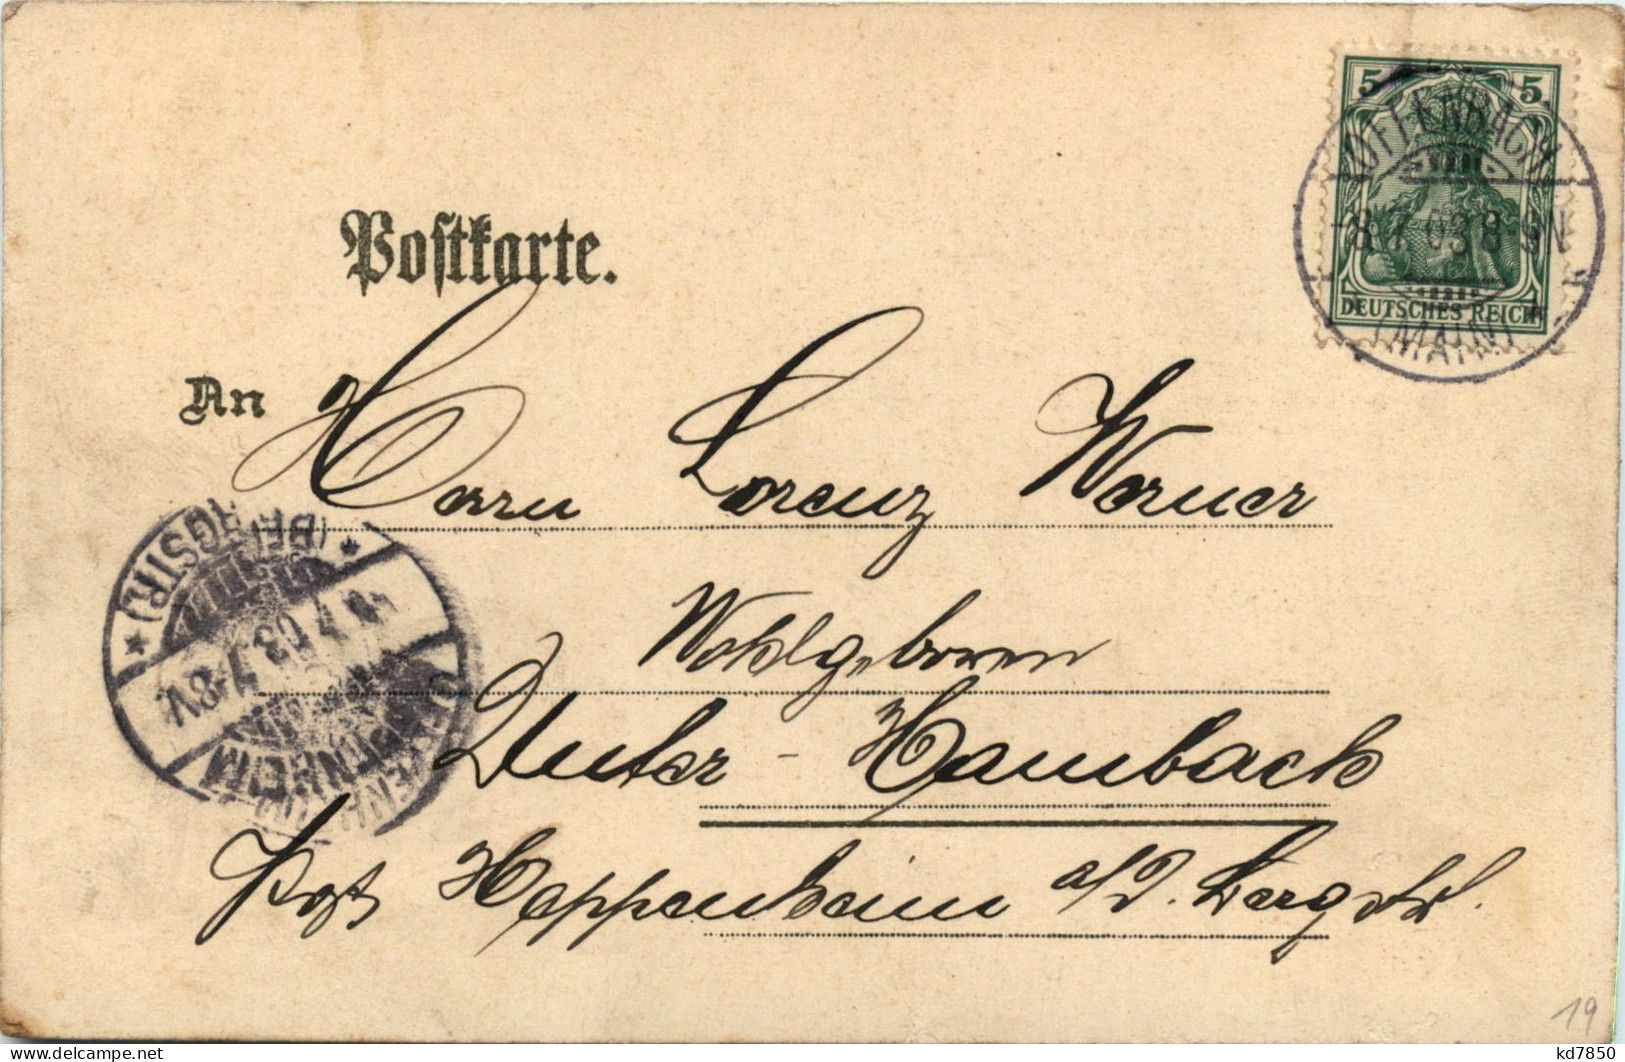 5 5
OFFENBACH
-8.7.03 8-9N
(MAIN)
DEUTSCHES REICH
Postkarte.
An Herrn Lorenz Werner
Wohlgeboren
Unter-Hambach
Post Heppenheim a/d. Bergstr.
HEPPENHEIM
7-8V.
(BERGSTR.)
19
kd7850